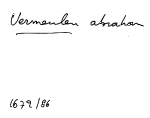 Vermeulen abraham
1679/86